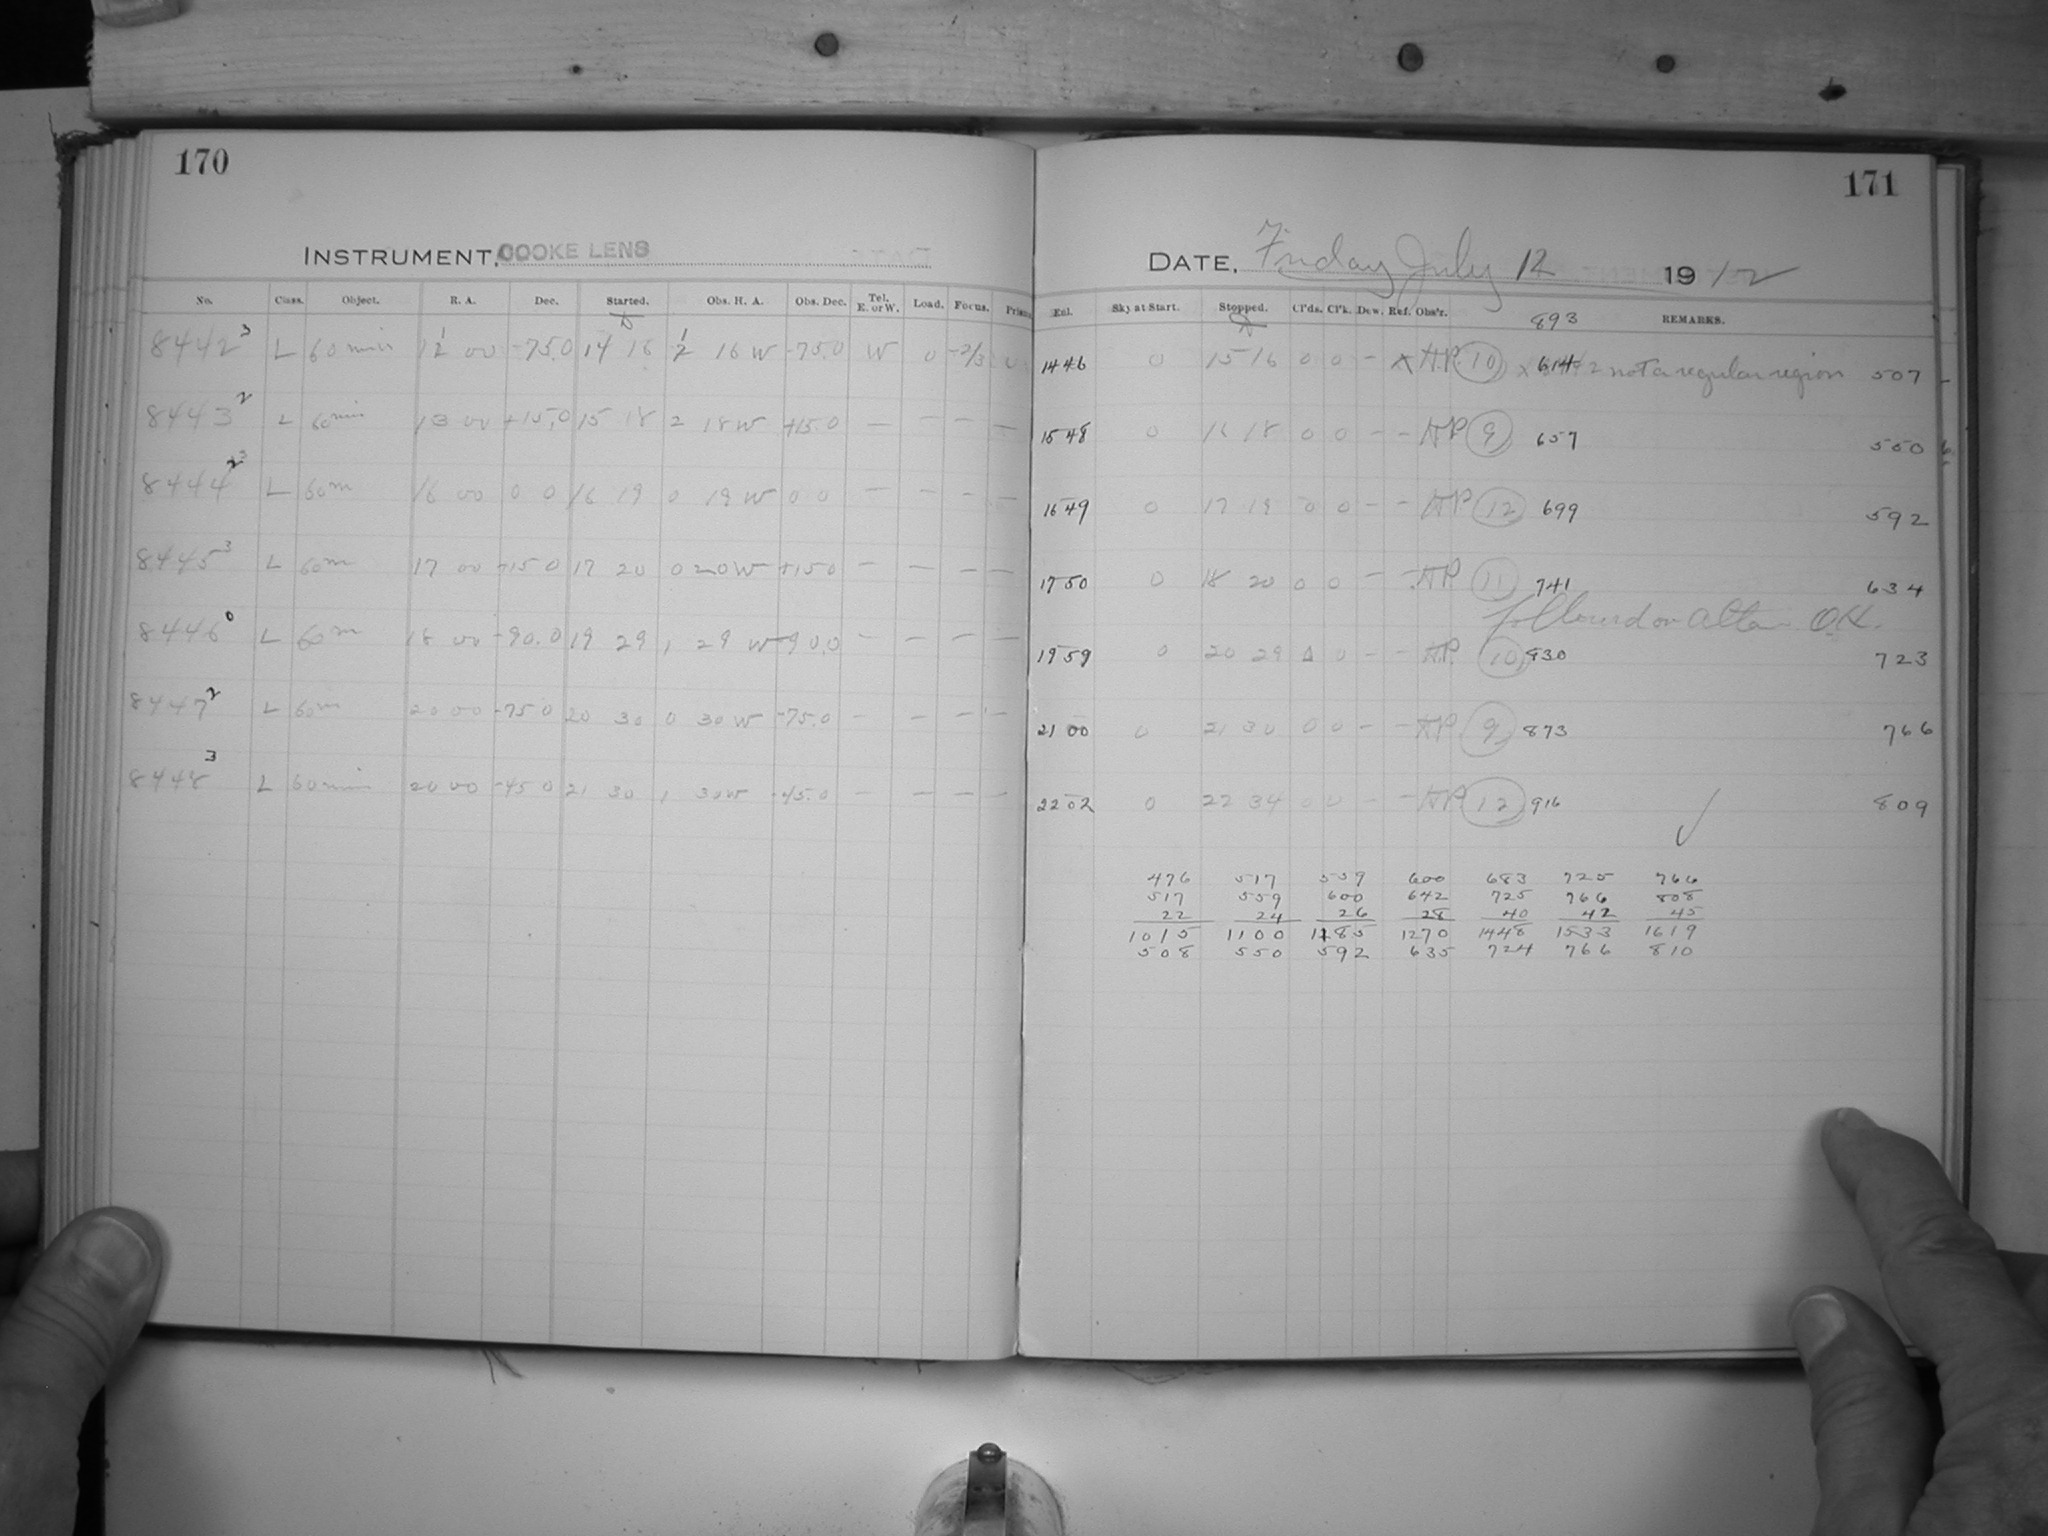 170
INSTRUMENT, COOKE LENS
No. Class. Object. R. A. Dec. Started. Obs. H. A. Obs. Dec. Tel. E. or W. Load. Focus. Prism.
8442 3 L 60 min 12 00 -75.0 14 16 2 16 W -75.0 W 0 -2/3 0
8443 2 L 60 min 13 00 +15.0 15 18 2 18 W +15.0 — — — —
8444 L 60m 16 00 0 0 16 19 0 19 W 0 0 — — — —
8445 3 L 60m 17 00 +15 0 17 20 0 20 W +15 0 — — — —
8446 0 L 60m 18 00 -90.0 19 29 1 29 W -90.0 — — — —
8447 2 L 60m 20 00 -75 0 20 30 0 30 W -75.0 — — — —
8448 3 L 60 min 20 00 -45 0 21 30 1 30 W -45.0 — — — —
171
DATE, Friday July 12 1912
Enl. Sky at Start. Stopped. Cl'ds. Cl'k. Dew. Ref. Obs'r. 893 REMARKS.
1446 0 15 16 0 0 - x H.P. 10 614 not a regular region 507
1548 0 16 18 0 0 - - H.P. 9 657 550
1649 0 17 19 0 0 - - H.P. 12 699 592
1750 0 18 20 0 0 - - H.P. 11 741 634
followed on OK.
1959 0 20 29 0 - - H.P. 10 830 723
2100 0 21 30 0 0 - - H.P. 9 873 766
2202 0 22 34 0 0 - - H.P. 12 916 809
476 517 559 600 683 725 766
517 559 600 642 725 766 808
22 24 26 28 40 42 45
1015 1100 1185 1270 1448 1533 1619
508 550 592 635 724 766 810